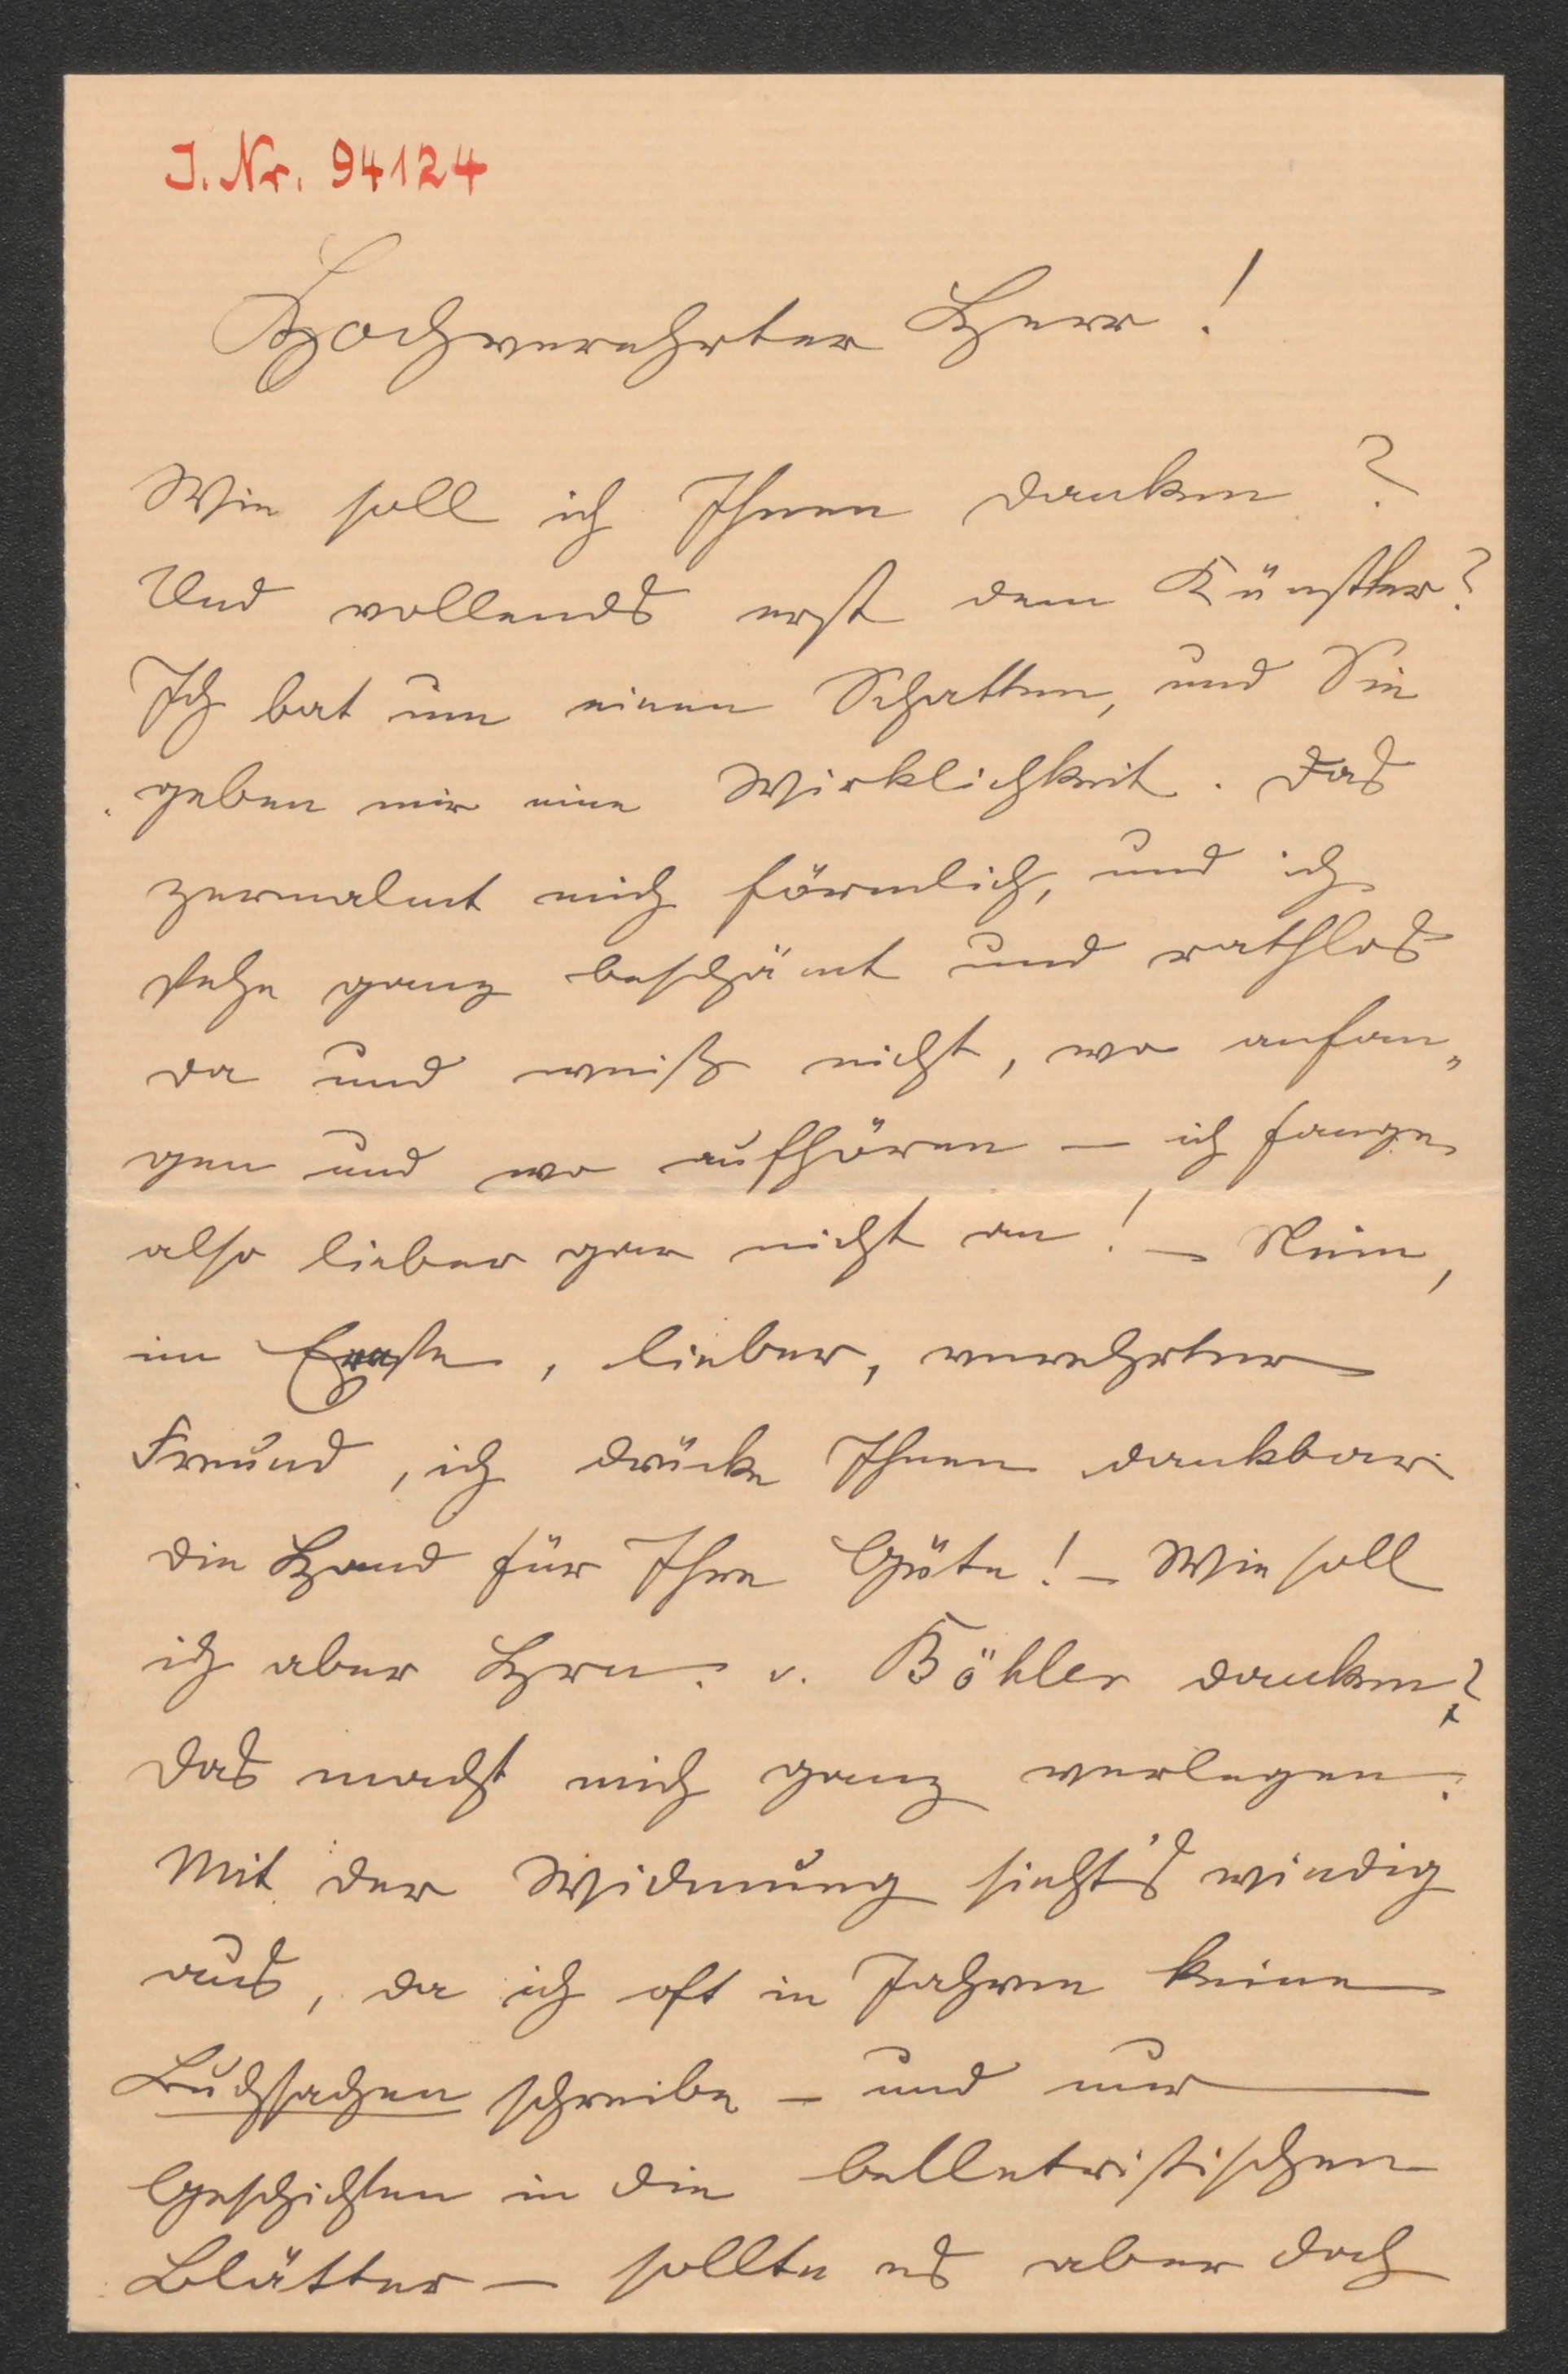 J. Nr. 94124
Hochverehrter Herr!
Wie soll ich Ihnen danken?
Und vollends erst dem Künstler?
Ich bat um einen Schatten, und Sie
geben mir eine Wirklichkeit. Das
zermalmt mich förmlich, und ich
stehe ganz beschämt und rathlos
da und weiß nicht, wo anfan„
gen und wo aufhören — ich fange
also lieber gar nicht an! — Nein,
im Ernste, lieber, verehrter
Freund, ich drücke Ihnen dankbar
die Hand für Ihre Güte! — Wie soll
ich aber Hrn. v. Böhler danken?
Das macht mich ganz verlegen.
Mit der Widmung sieht's windig
aus, da ich oft in Jahren keine
Buchsachen schreibe — und nur
Geschichten in die belletristischen
Blätter — sollte es aber doch